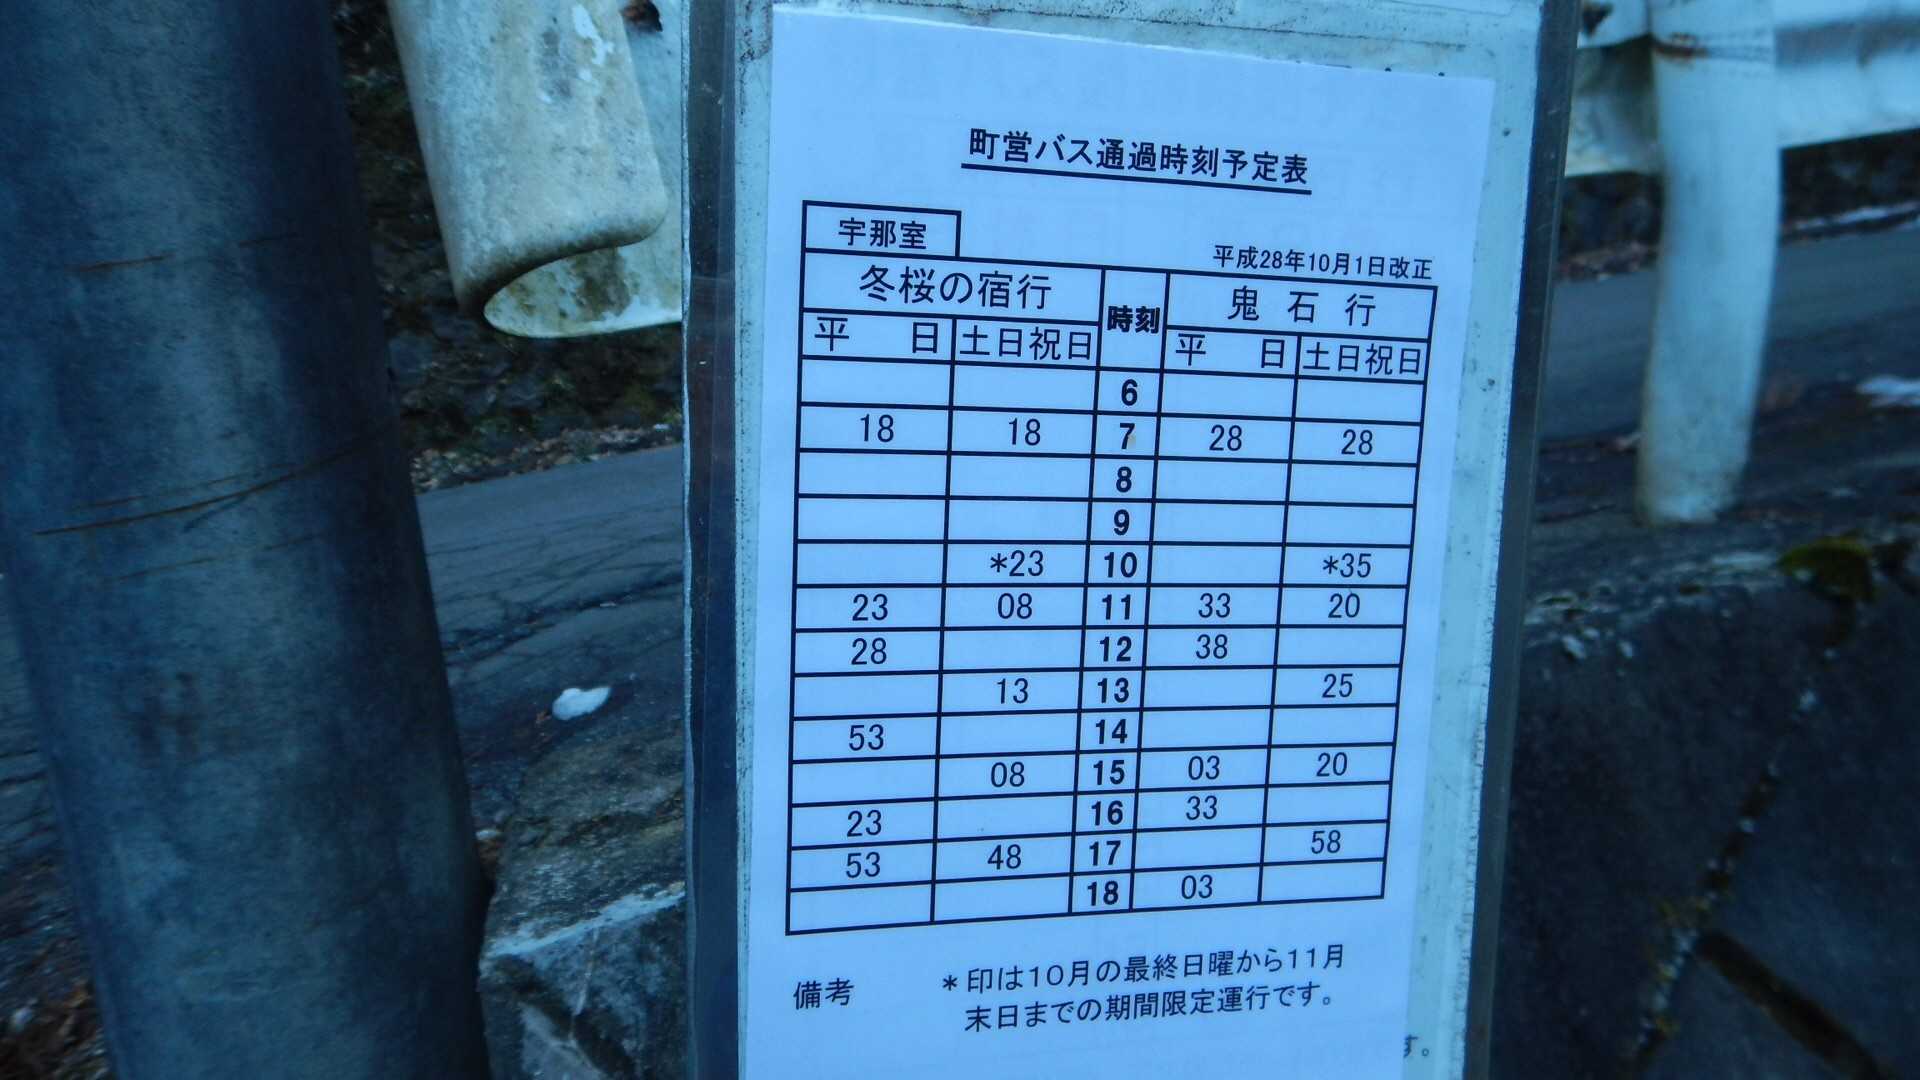 町営バス通過時刻予定表
宇那室
平成28年10月1日改正
冬桜の宿行 時刻 鬼石行
平日 土日祝日 平日 土日祝日
6
18 18 7 28 28
8
9
*23 10 *35
23 08 11 33 20
28 12 38
13 13 25
53 14
08 15 03 20
23 16 33
53 48 17 58
18 03
備考 *印は10月の最終日曜から11月
末日までの期間限定運行です。
す。